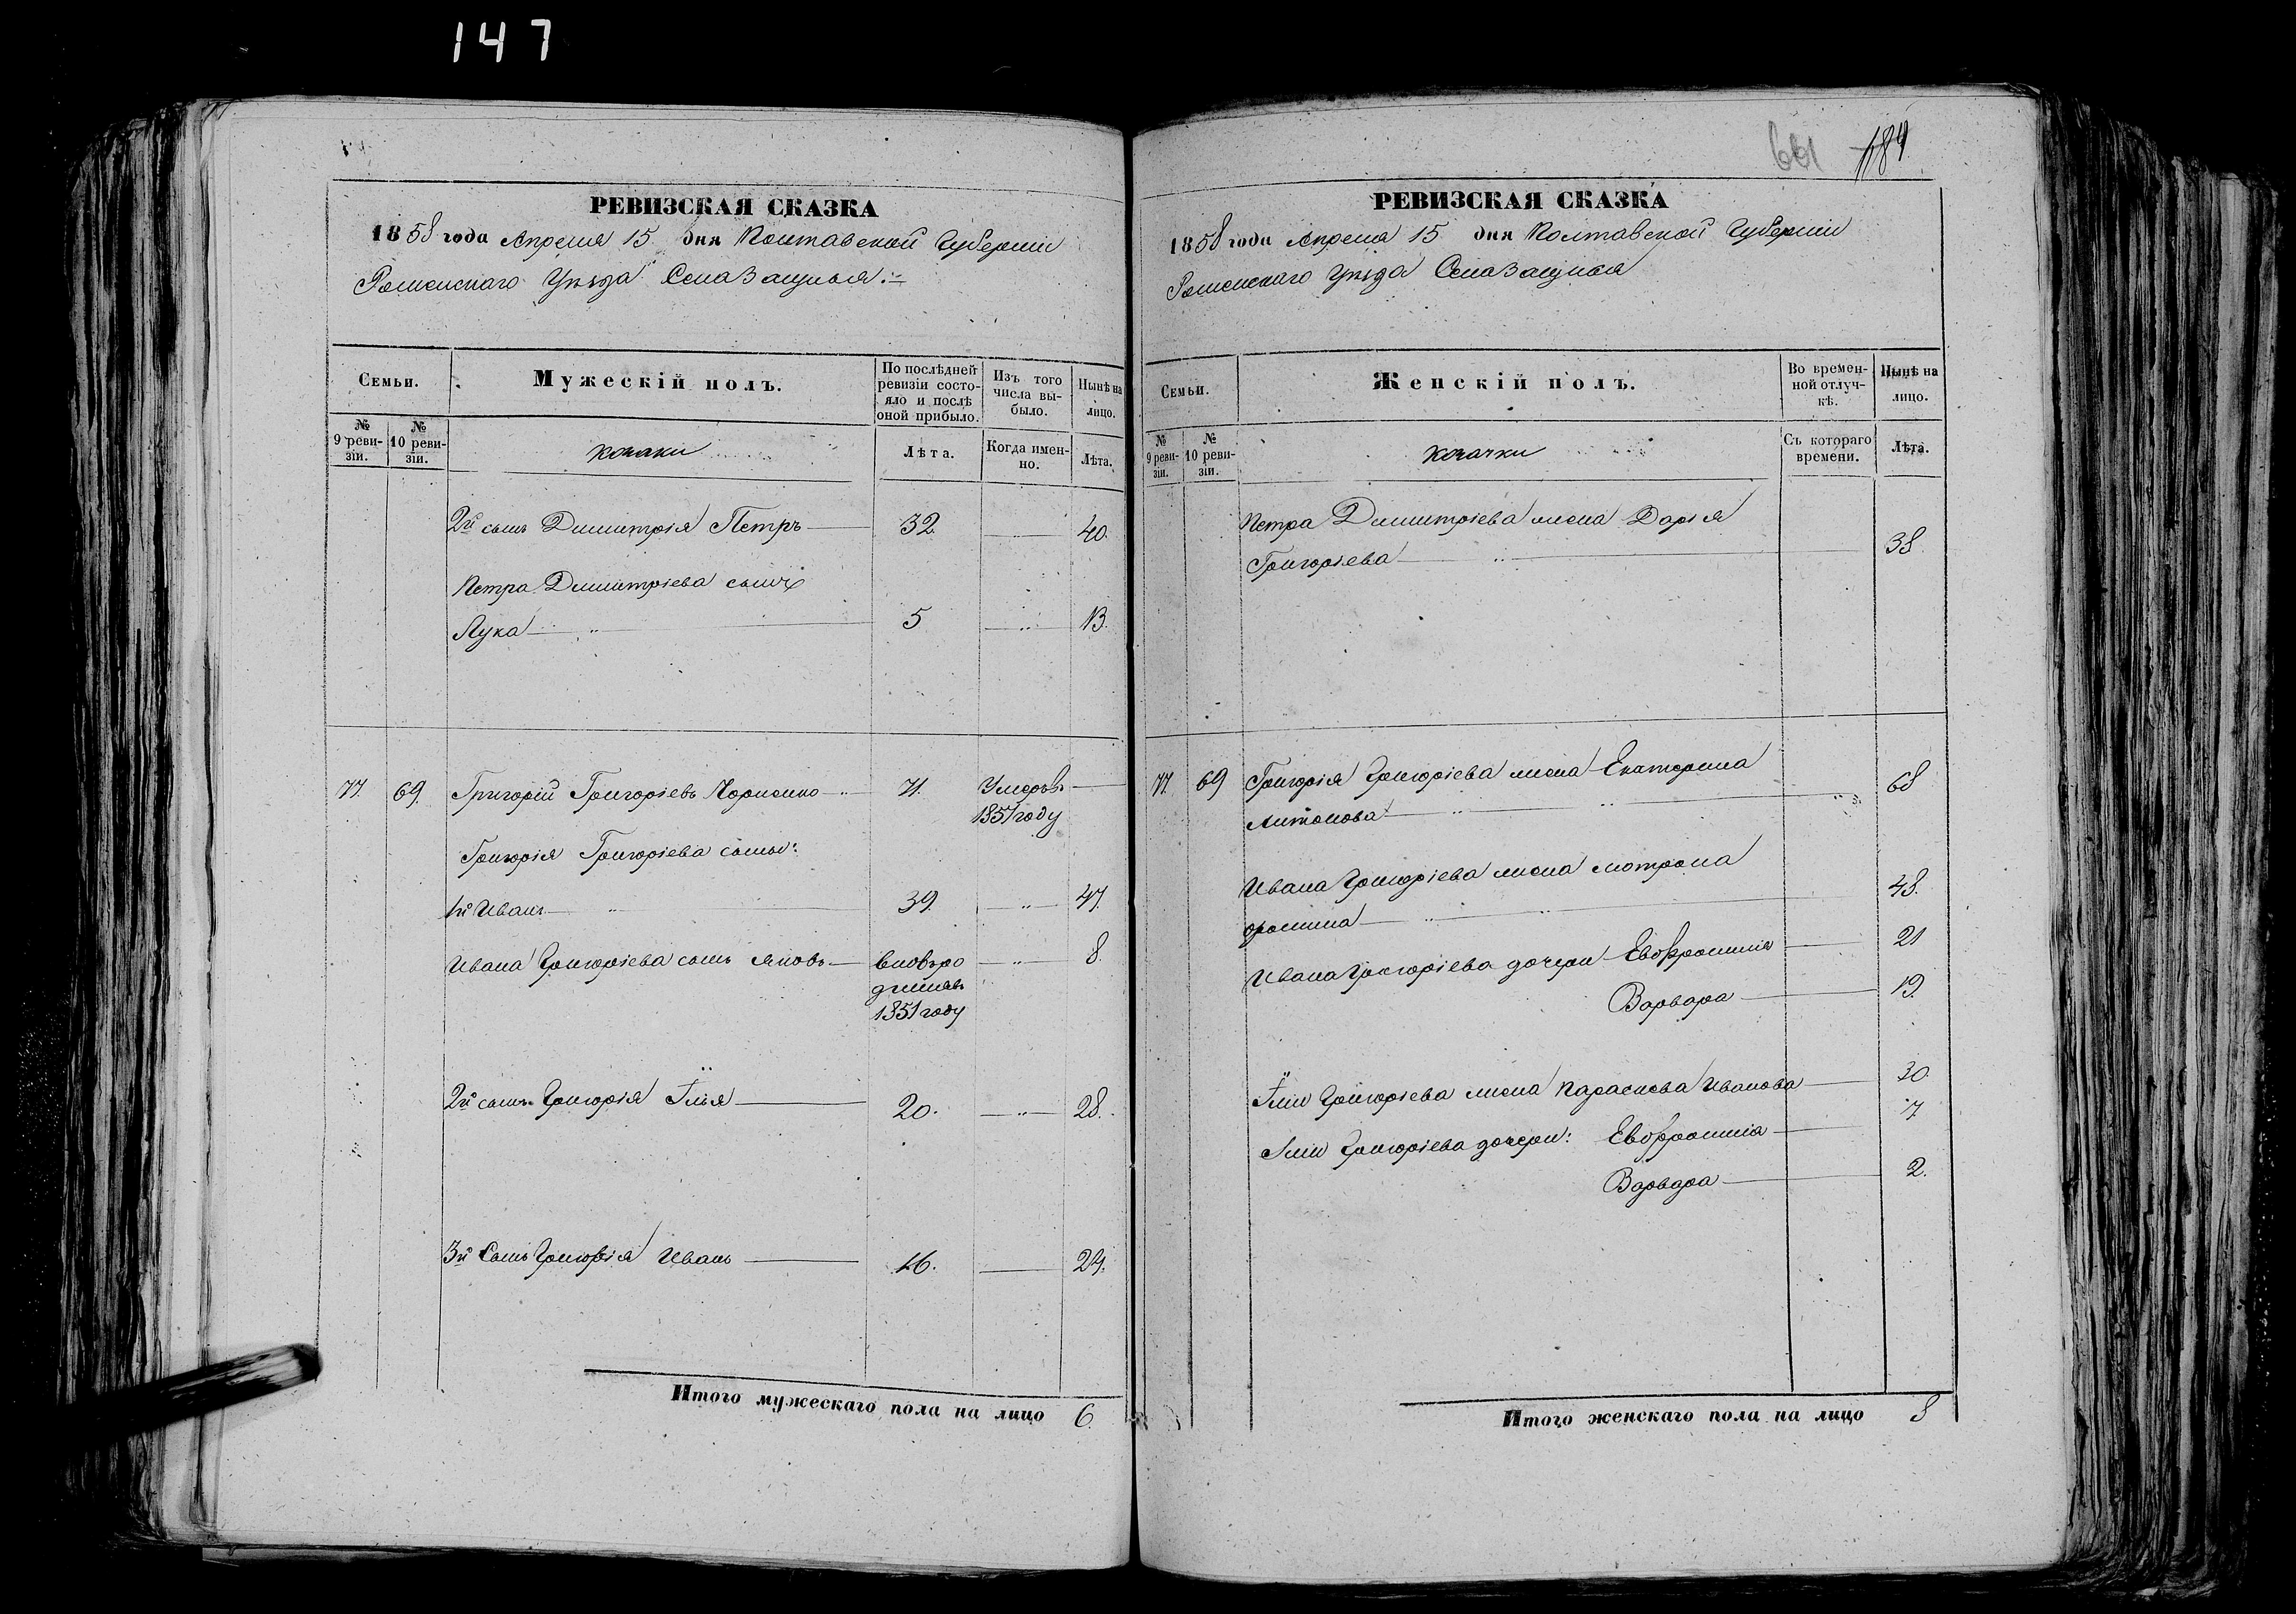 147
РЕВИЗСКАЯ СКАЗКА
1858 года Апреля 15 дня Полтавской Губерніи
Роменскаго Уѣзда Села Защилья:
Семьи.
Мужескій полъ.
По послѣдней ревизіи состояло и послѣ оной прибыло.
Изъ того числа выбыло.
Нынѣ на лицо.
№ 9 ревизіи.
№ 10 ревизіи.
козаки
Лѣта.
Когда именно.
Лѣта.
2й сынъ Димитрія Петръ 32. 40.
Петра Димитріева сынъ
Лука 5 13.
77. 69. Григорій Григорьевъ 71. Умеръ въ
1851 году
Григорія Григоріева сыны:
1й Иванъ 39. 47.
Ивана Григоріева сынъ Яковъ вновь ро 8.
дился въ
1851 году
2й сынъ Григорія Илія 20. 28.
3й Сынъ Григорія Иванъ 16. 24.
Итого мужескаго пола на лицо 6.
661 184
РЕВИЗСКАЯ СКАЗКА
1858 года Апреля 15 дня Полтавской Губерніи
Роменскаго Уѣзда Села Защилья
Семьи.
Женскій полъ.
Во временной отлучкѣ.
Нынѣ на лицо.
№ 9 ревизіи.
№ 10 ревизіи.
козачки
Съ котораго времени.
Лѣта.
Петра Димитріева жена Дарія
Григоріева 38.
77. 69 Григорія Григоріева жена Екатерина
Антонова 68
Ивана Григоріева жена Мотрона
48.
Ивана Григоріева дочери Евфросинія 21
Варвара 19.
Иліи Григоріева жена Параскева Иванова 30.
Иліи Григоріева дочери: Евфросинія 7.
Варвара 2.
Итого женскаго пола на лицо 8